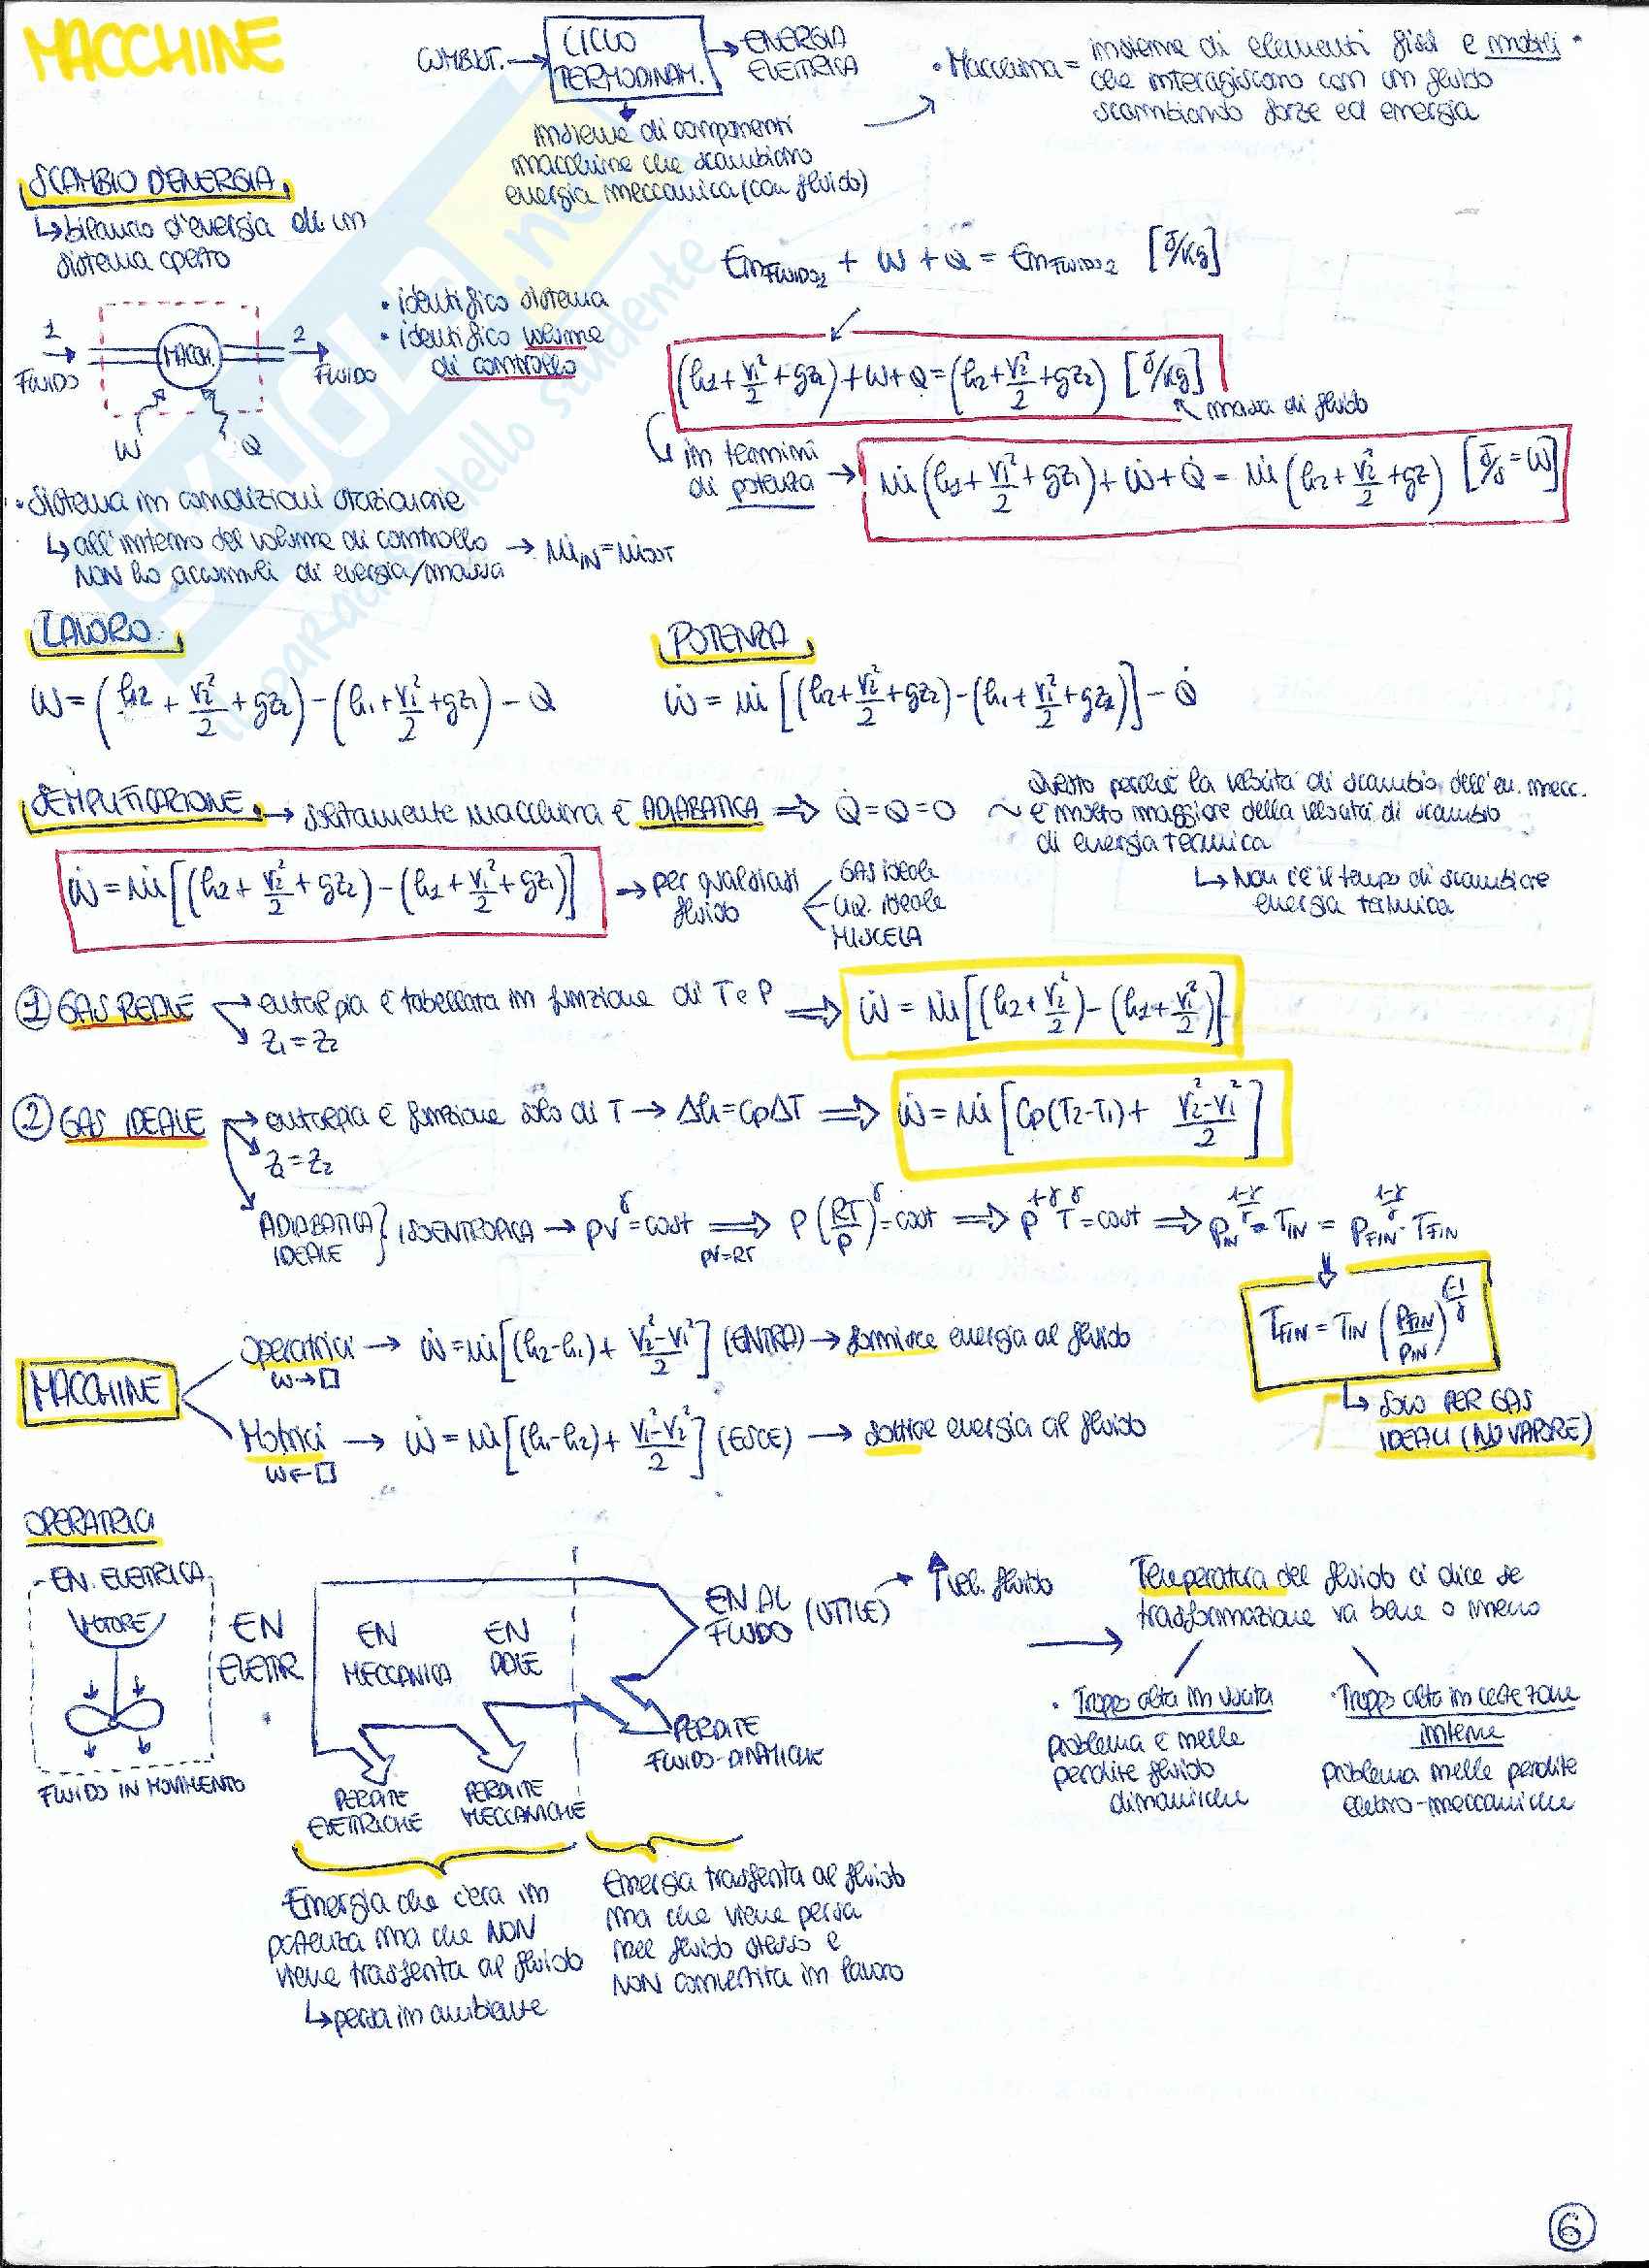 MACCHINE
COMBUST. → CICLO TERMODINAM. → ENERGIA ELETTRICA
insieme di componenti
macchine che scambiano
energia meccanica (con fluido)
• Macchina = insieme di elementi fissi e mobili
che interagiscono con un fluido
scambiando forze ed energia
SCAMBIO D'ENERGIA
↳ bilancio d'energia di un
sistema aperto
1 FLUIDO
MACCH.
2 FLUIDO
W Q
• identifico sistema
• identifico volume
di controllo
En FLUIDO1 + W + Q = En FLUIDO2 [J/kg]
(h1 + v1²/2 + gz1) + W + Q = (h2 + v2²/2 + gz2) [J/kg]
massa di fluido
in termini
di potenza → ṁ(h1 + v1²/2 + gz1) + Ẇ + Q̇ = ṁ(h2 + v2²/2 + gz) [J/s = W]
• Sistema in condizioni stazionarie
↳ all'interno del volume di controllo → ṁIN = ṁOUT
NON ho accumuli di energia/massa
LAVORO
W = (h2 + v2²/2 + gz2) - (h1 + v1²/2 + gz1) - Q
POTENZA
Ẇ = ṁ[(h2 + v2²/2 + gz2) - (h1 + v1²/2 + gz1)] - Q̇
SEMPLIFICAZIONE → solitamente macchina è ADIABATICA ⇒ Q̇ = Q = 0 ~ Questo perché la velocità di scambio dell'en. mecc.
è molto maggiore della velocità di scambio
di energia termica
↳ Non c'è il tempo di scambiare
energia termica
Ẇ = ṁ[(h2 + v2²/2 + gz2) - (h1 + v1²/2 + gz1)] → per qualsiasi fluido
GAS ideale
LIQ. ideale
MISCELA
① GAS REALE → entalpia è tabellata in funzione di T e P ⇒ Ẇ = ṁ[(h2 + v2²/2) - (h1 + v1²/2)]
z1 = z2
② GAS IDEALE → entalpia è funzione solo di T → Δh = CpΔT ⇒ Ẇ = ṁ[Cp(T2-T1) + (v2²-v1²)/2]
z1 = z2
ADIABATICA IDEALE } ISOENTROPICA → pv^γ = cost ⇒ P(RT/P)^γ = cost ⇒ p^(1-γ) T^γ = cost ⇒ PIN^((1-γ)/γ) · TIN = PFIN^((1-γ)/γ) · TFIN
pv=RT
TFIN = TIN (PFIN/PIN)^((γ-1)/γ)
↳ SOLO PER GAS
IDEALI (NO VAPORE)
MACCHINE
Operatrici → Ẇ = ṁ[(h2-h1) + (v2²-v1²)/2] (ENTRA) → fornisce energia al fluido
W→□
Motrici → Ẇ = ṁ[(h1-h2) + (v1²-v2²)/2] (ESCE) → sottrae energia al fluido
W←□
OPERATRICI
EN. ELETTRICA
MOTORE
FLUIDO IN MOVIMENTO
EN ELETTR
EN MECCANICA
EN PALE
EN AL FLUIDO (UTILE) → ↑vel. fluido
PERDITE ELETTRICHE
PERDITE MECCANICHE
PERDITE FLUIDO-DINAMICHE
Energia che c'era in
potenza ma che NON
viene trasferita al fluido
↳ persa in ambiente
Energia trasferita al fluido
ma che viene persa
nel fluido stesso e
NON convertita in lavoro
→ Temperatura del fluido ci dice se
trasformazione va bene o meno
• Troppo alta in uscita
problema è nelle
perdite fluido
dinamiche
• Troppo alta in certe zone
interne
problema nelle perdite
elettro-meccaniche
6